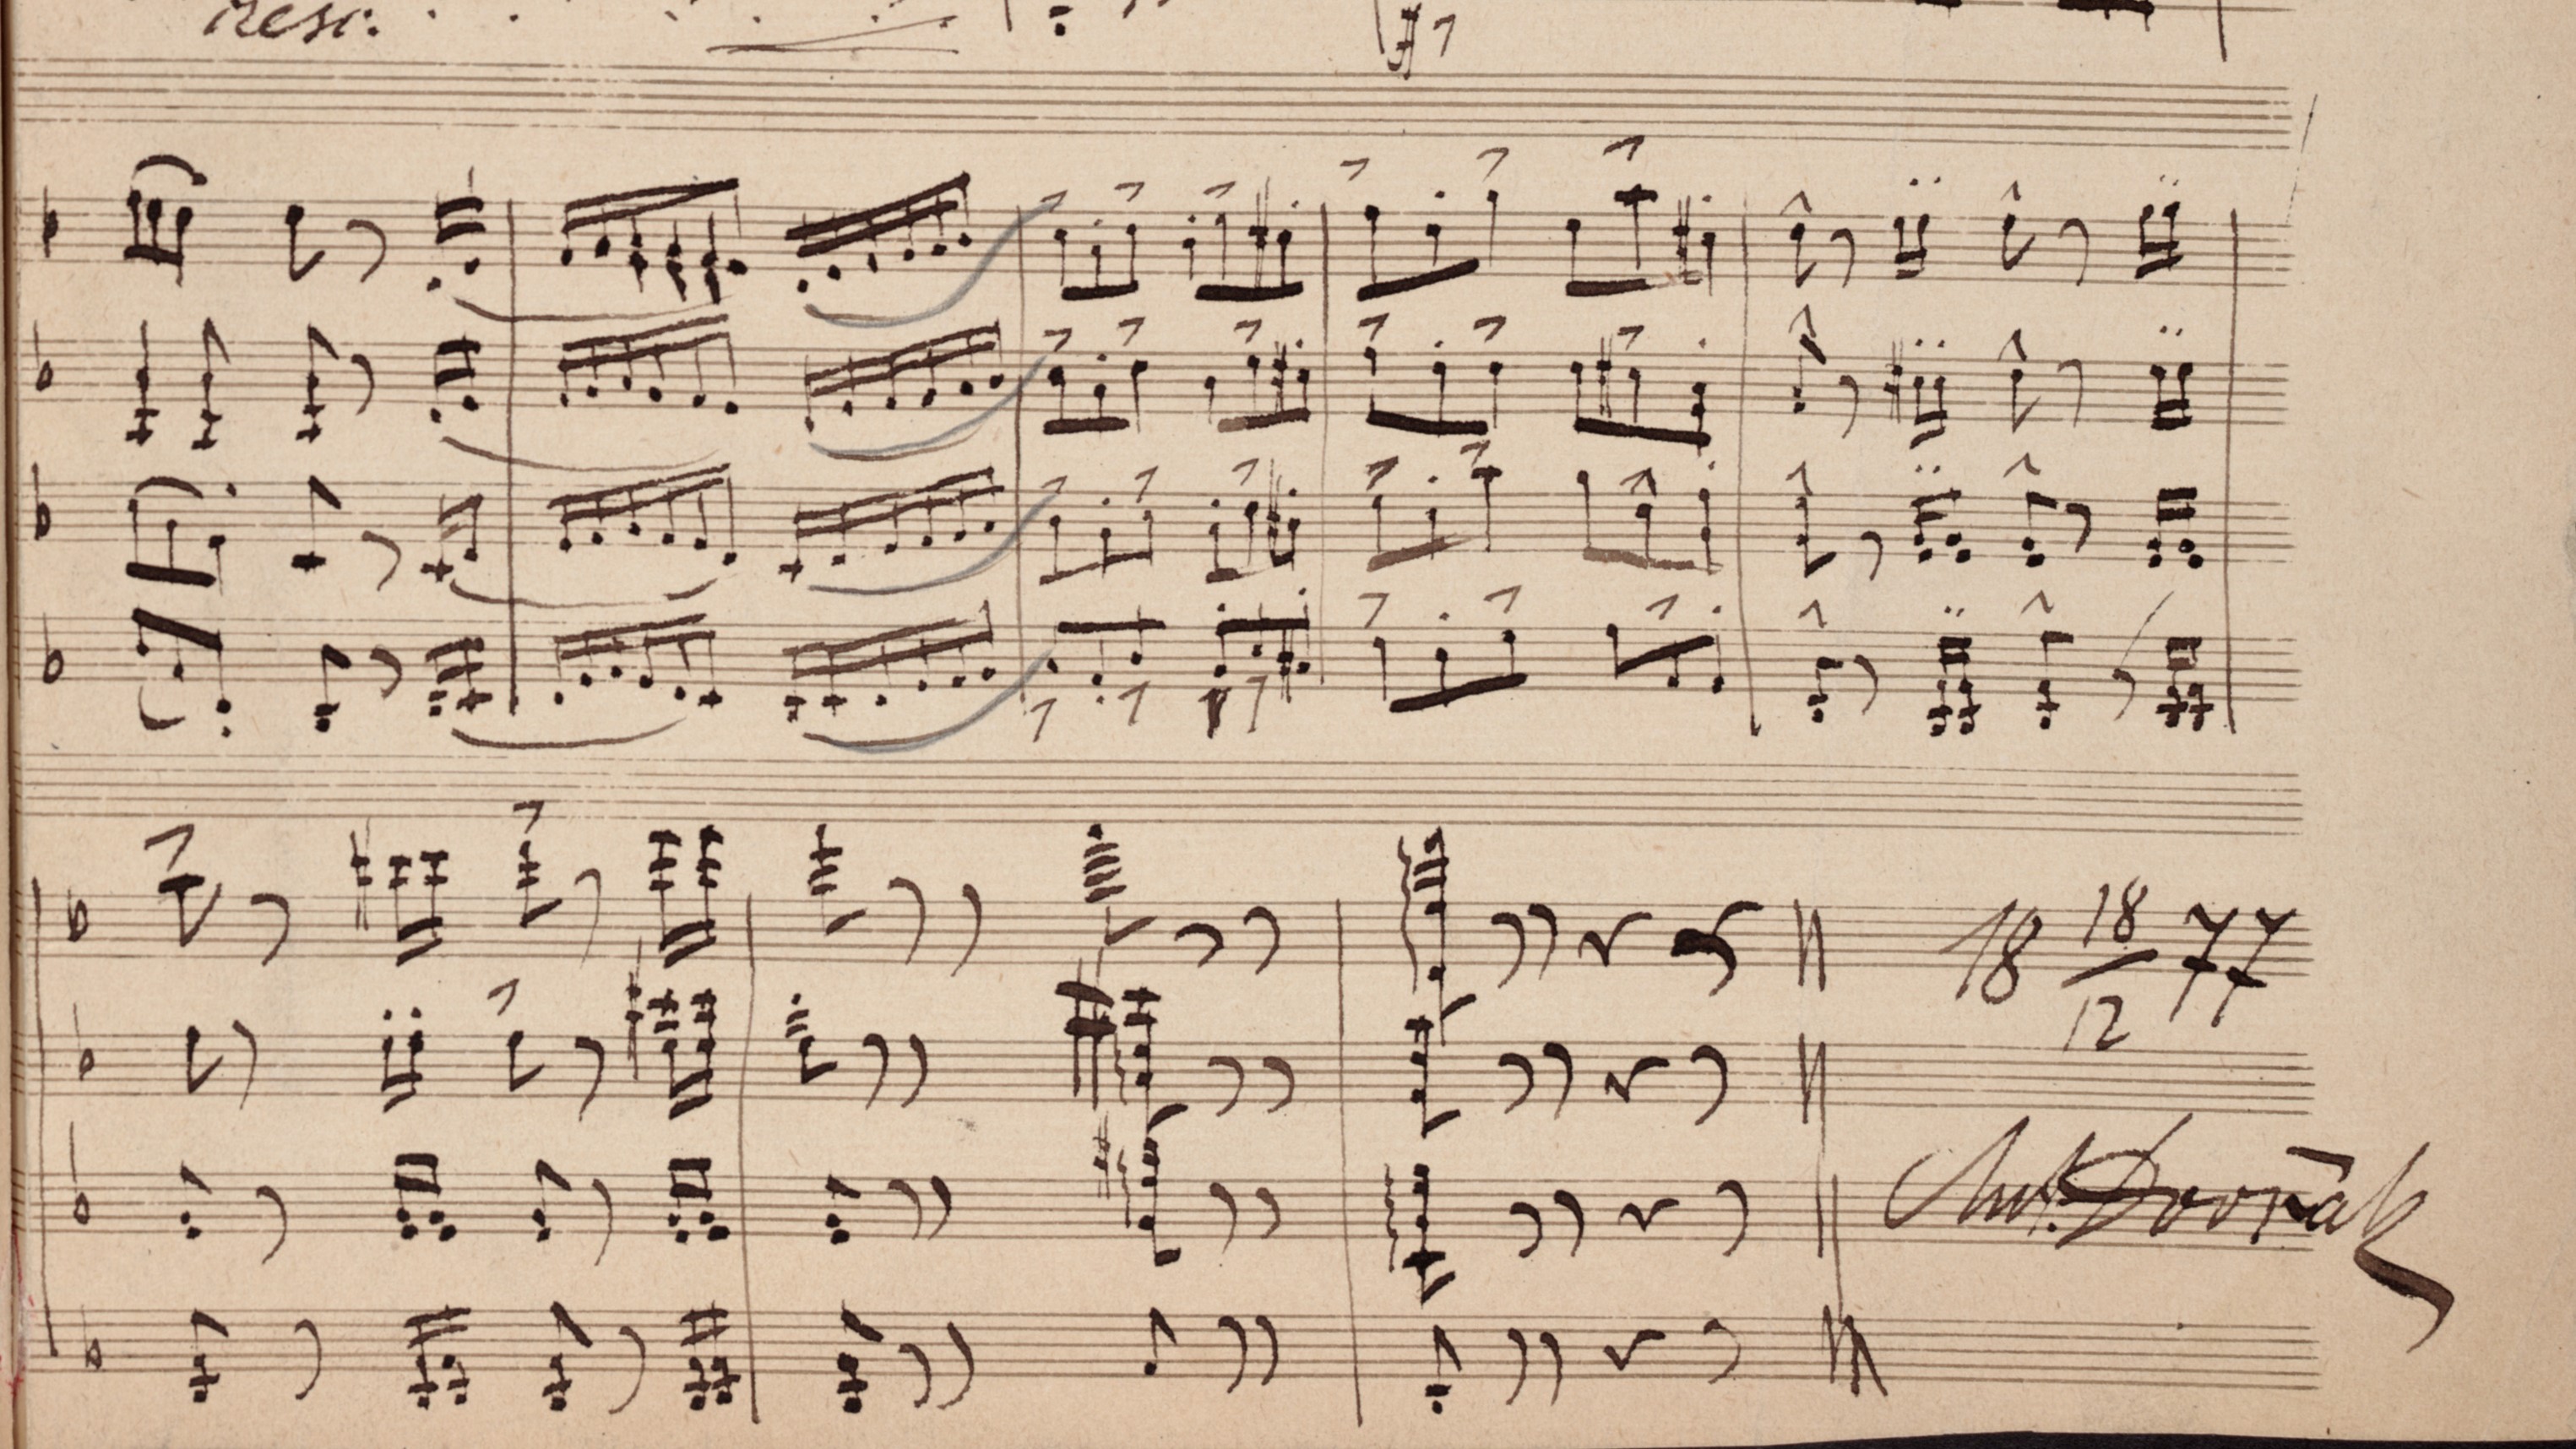 cresc:
18 18/12 77
Ant. Dvořák